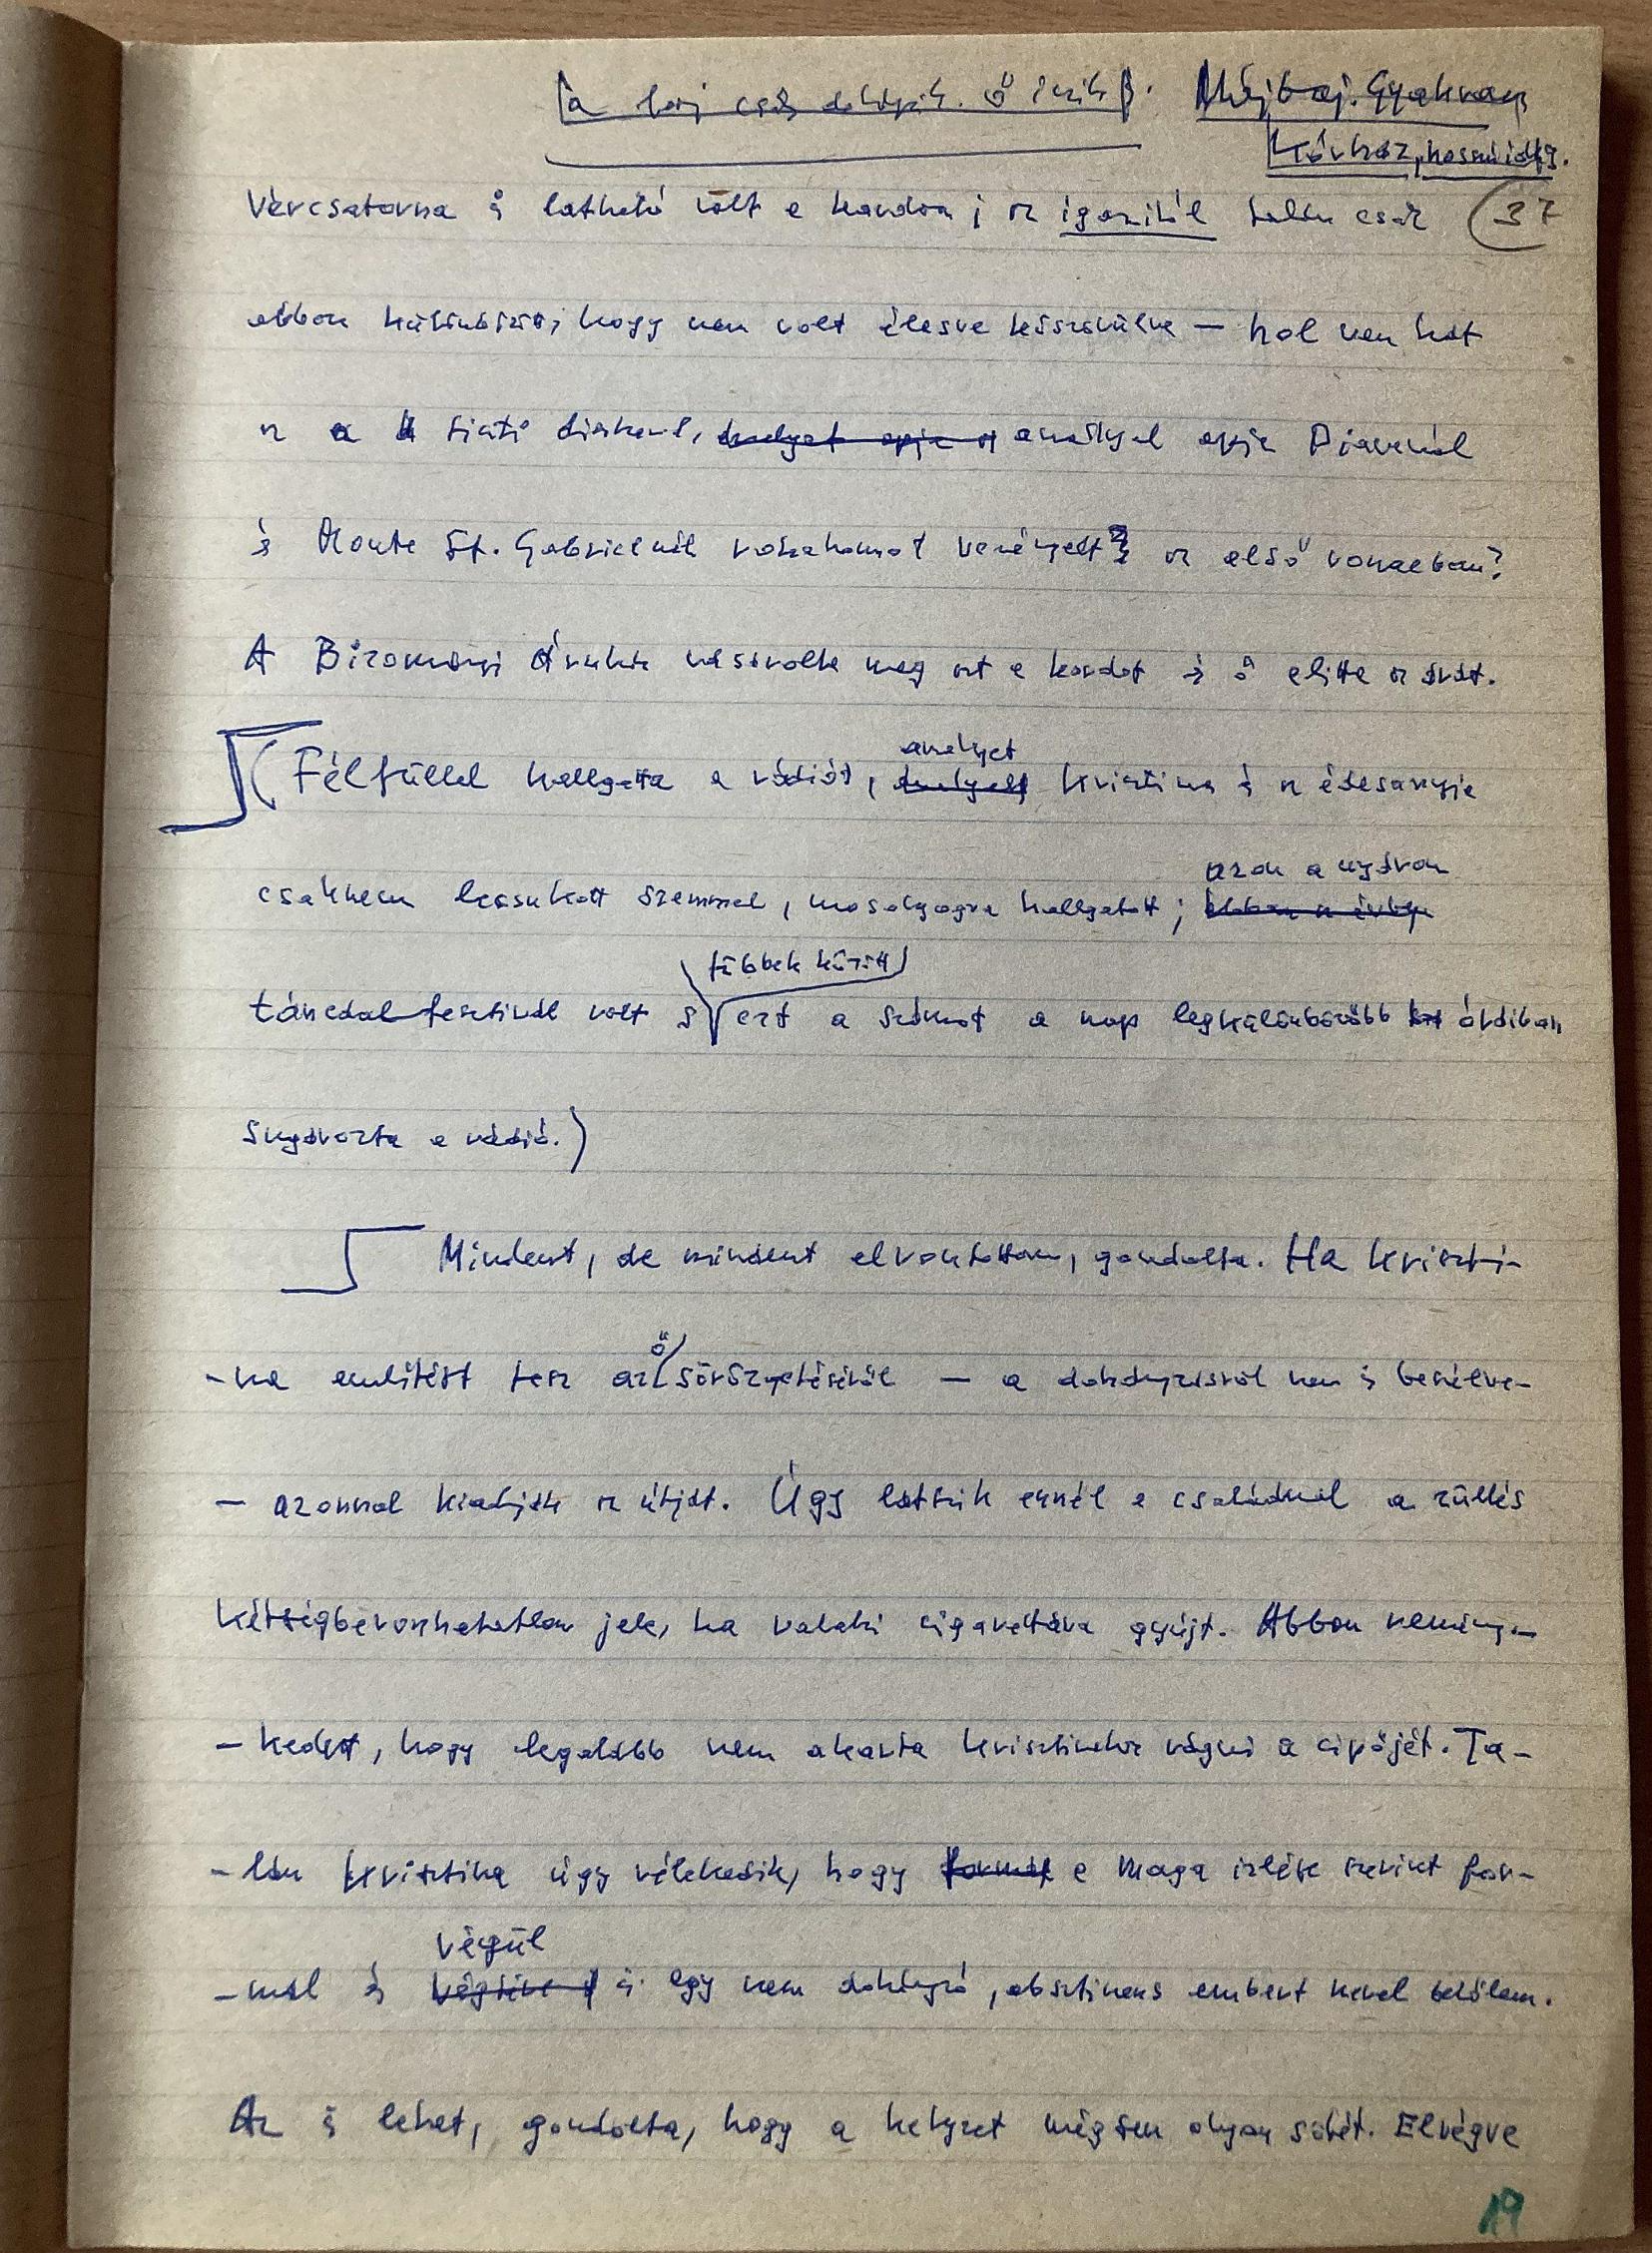 a baj csak dohányzik. ő iszik. Májbaj. Gyakran
Kórház, hosszú ideig.
Vércsatorna is látható volt a kardon; az igazitól talán csak 37
abban különbözött, hogy nem volt élesre köszörülve — hol van hát
az a tiszti díszkard, melyet apja amellyel apja Piavenál
és Monte St. Gabrielnél rohamot vezényelt az első vonalban?
A Bizományi Áruház vásárolta meg azt a kardot és ő elitta az árát.
amelyet
(Félfüllel hallgatta a rádiót, melyet Krisztina és az édesanyja
azon a nyáron
csaknem lesütött szemmel, mosolyogva hallgatott; ebben az évben
többek között
táncdalfesztivál volt s ezt a számot a nap legkülönbözőbb óráiban
sugározta a rádió.)
Mindent, de mindent elrontottam, gondolta. Ha Kriszti-
ő
-na említést tesz az sörözgetéséről — a dohányzásról nem is beszélve-
— azonnal kiadják az útját. Úgy látszik ennél a családnál a züllés
kétségbevonhatatlan jele, ha valaki cigarettára gyújt. Abban remény-
-kedett, hogy legalább nem akarta Krisztinához vágni a cipőjét. Ta-
-lán Krisztina úgy vélekedik, hogy formál a maga ízlése szerint for-
végül
-mál és végtére is egy nem dohányzó, absztinens embert nevel belőlem.
Az is lehet, gondolta, hogy a helyzet mégsem olyan sötét. Elvégre
19